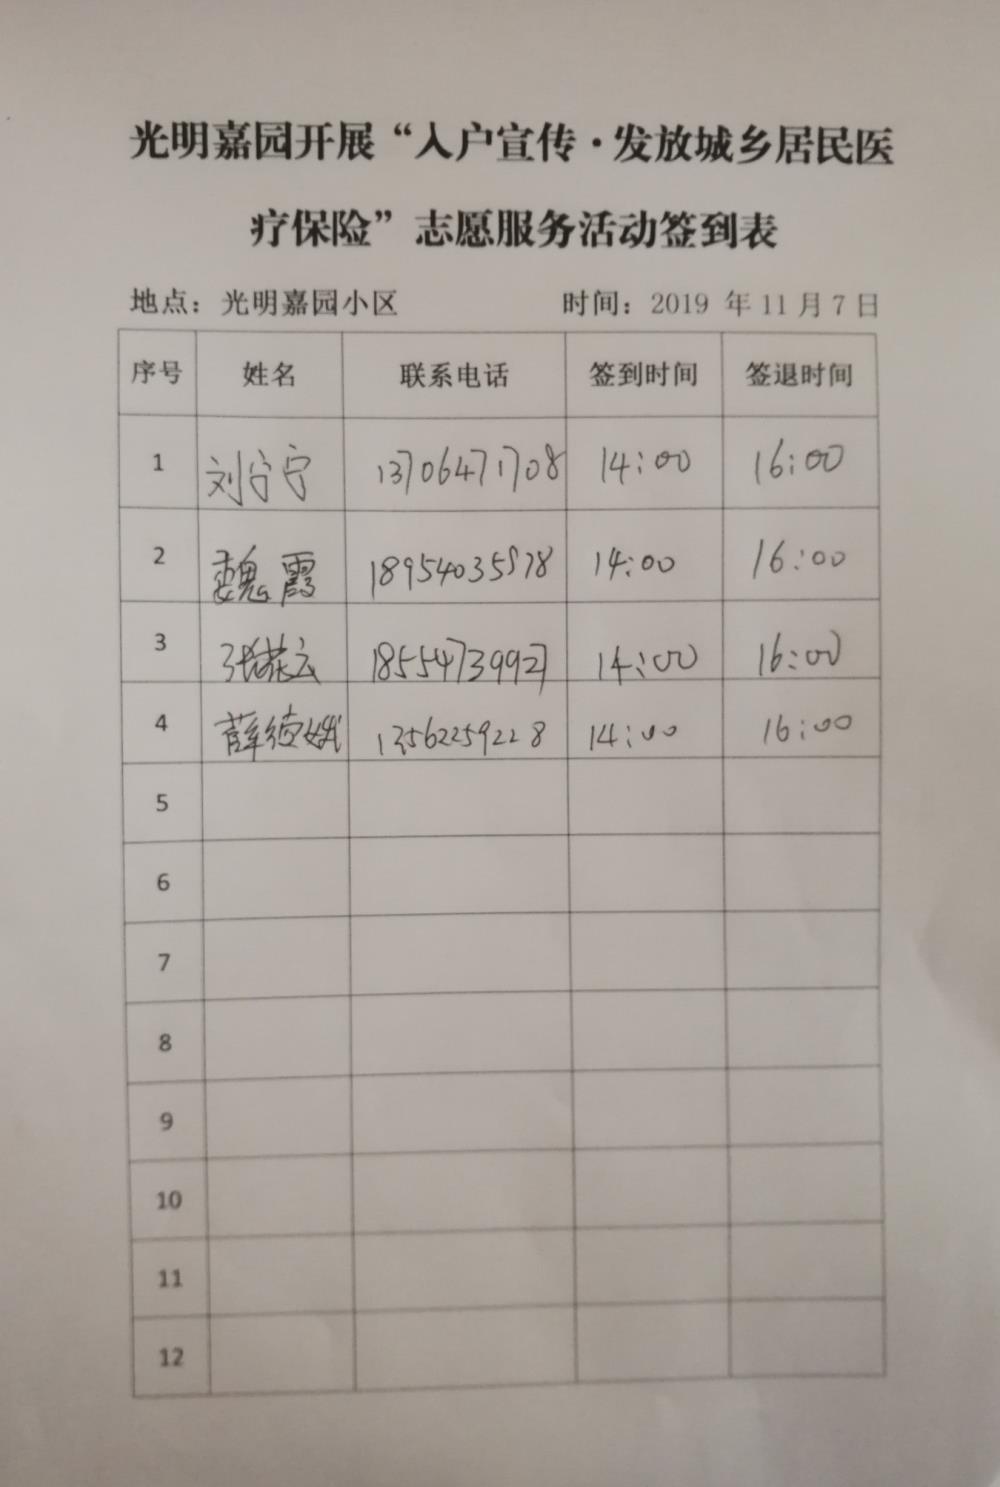 光明嘉园开展“入户宣传·发放城乡居民医
疗保险”志愿服务活动签到表
地点：光明嘉园小区 时间：2019 年 11 月 7 日
序号 姓名 联系电话 签到时间 签退时间
1 刘宁宁 13706471708 14:00 16:00
2 魏霞 14:00 16:00
3 18554739927 14:00 16:00
4 薛德娥 13562259228 14:00 16:00
5
6
7
8
9
10
11
12